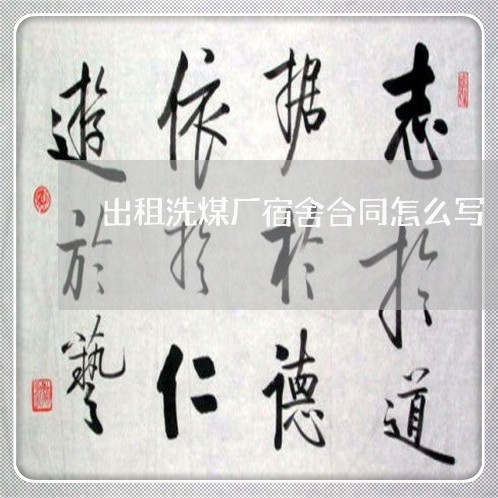 志於道
据於德
依於仁
遊於藝
出租洗煤厂宿舍合同怎么写